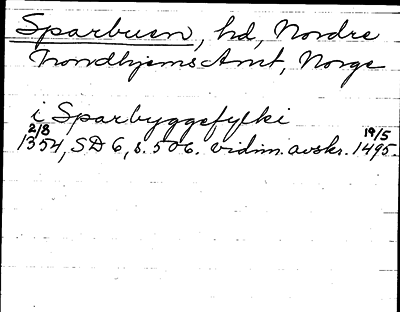 Sparbuen, hd, Nordre
Trondhjems Amt, Norge
i Sparbyggefylki
2/8 19/5
1354, SD 6, s. 506. vidim. avskr. 1495.